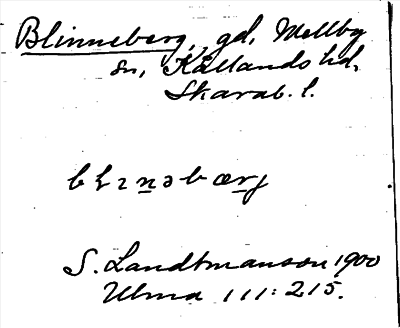 Blinneberg, gd, Mellby
sn, Kållands hd,
Skarab. l.
S. Landtmanson 1900
Ulma 111:215.